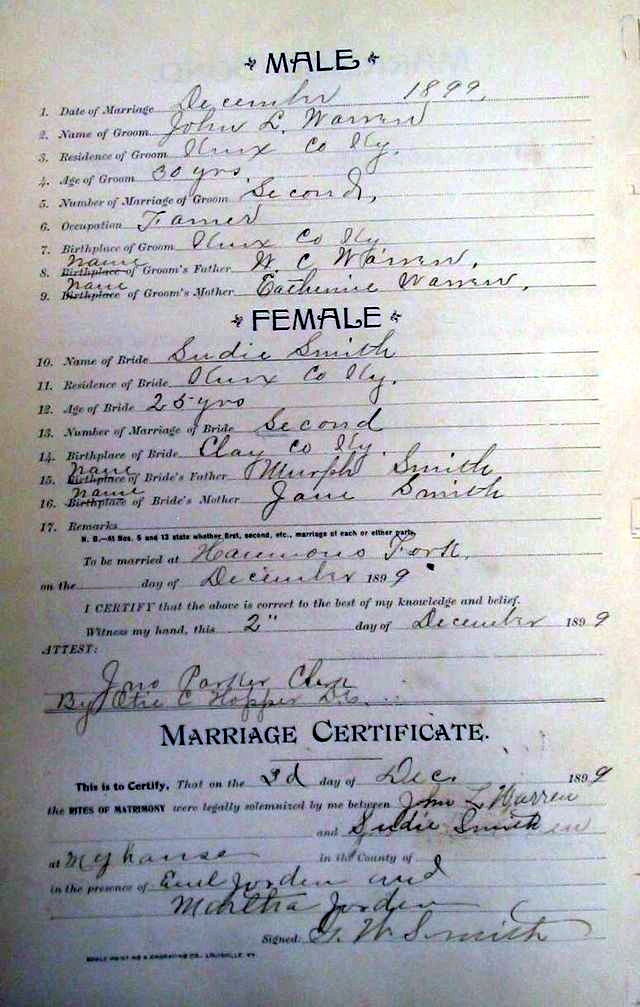 MALE
1. Date of Marriage December 1899,
2. Name of Groom John L. Warren
3. Residence of Groom Knox Co Ky.
4. Age of Groom 30 yrs.
5. Number of Marriage of Groom Second,
6. Occupation Farmer
7. Birthplace of Groom Knox Co Ky
name
8. Birthplace of Groom's Father W. C Warren,
name
9. Birthplace of Groom's Mother Catherine Warren,
FEMALE
10. Name of Bride Sudie Smith
11. Residence of Bride Knox Co Ky.
12. Age of Bride 25 yrs
13. Number of Marriage of Bride Second
14. Birthplace of Bride Clay Co Ky.
name
15. Birthplace of Bride's Father Murph Smith
name
16. Birthplace of Bride's Mother Jane Smith
17. Remarks
N. B.—At Nos. 5 and 13 state whether first, second, etc., marriage of each or either party.
To be married at Hammons Fork.
on the day of December 1899
I CERTIFY that the above is correct to the best of my knowledge and belief.
Witness my hand, this 2" day of December 1899
ATTEST:
Jno Parker Clerk
By C Hopper D.C.
MARRIAGE CERTIFICATE.
This is to Certify, That on the 3d day of Dec. 1899
the RITES OF MATRIMONY were legally solemnized by me between John L Warren
and Sudie Smith
at My house in the County of
in the presence of Jorden and
Martha Jorden
Signed: G. W Smith
PRINTING & ENGRAVING CO., LOUISVILLE, KY.